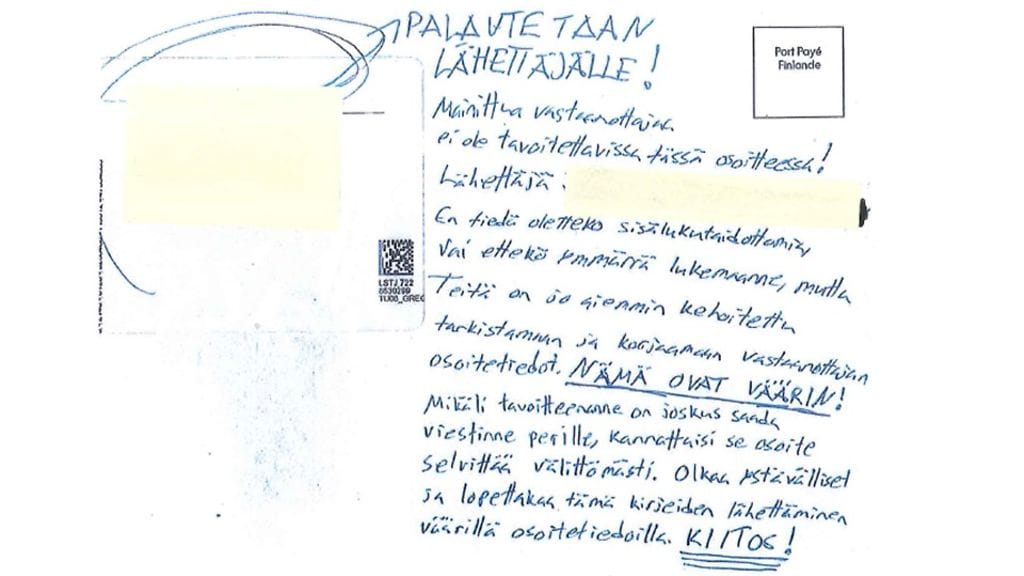 PALAUTETAAN
LÄHETTÄJÄLLE!
Port Payé
Finlande
Mainittua vastaanottajaa
ei ole tavoitettavissa tässä osoitteessa!
Lähettäjä:
En tiedä oletteko sisälukutaidottomia,
vai ettekö ymmärrä lukemaanne, mutta
Teitä on jo aiemmin kehoitettu
tarkistamaan ja korjaamaan vastaanottajan
osoitetiedot. NÄMÄ OVAT VÄÄRIN!
Mikäli tavoitteenanne on joskus saada
viestinne perille, kannattaisi se osoite
selvittää välittömästi. Olkaa ystävälliset
ja lopettakaa tämä kirjeiden lähettäminen
väärillä osoitetiedoilla. KIITOS!
LSTJ 722